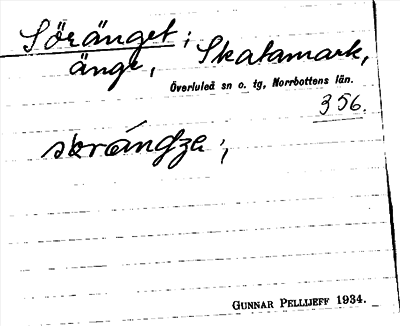 Söränget;
änge, Skatamark,
Överluleå sn o. tg, Norrbottens län.
356.
GUNNAR PELLIJEFF 1934.